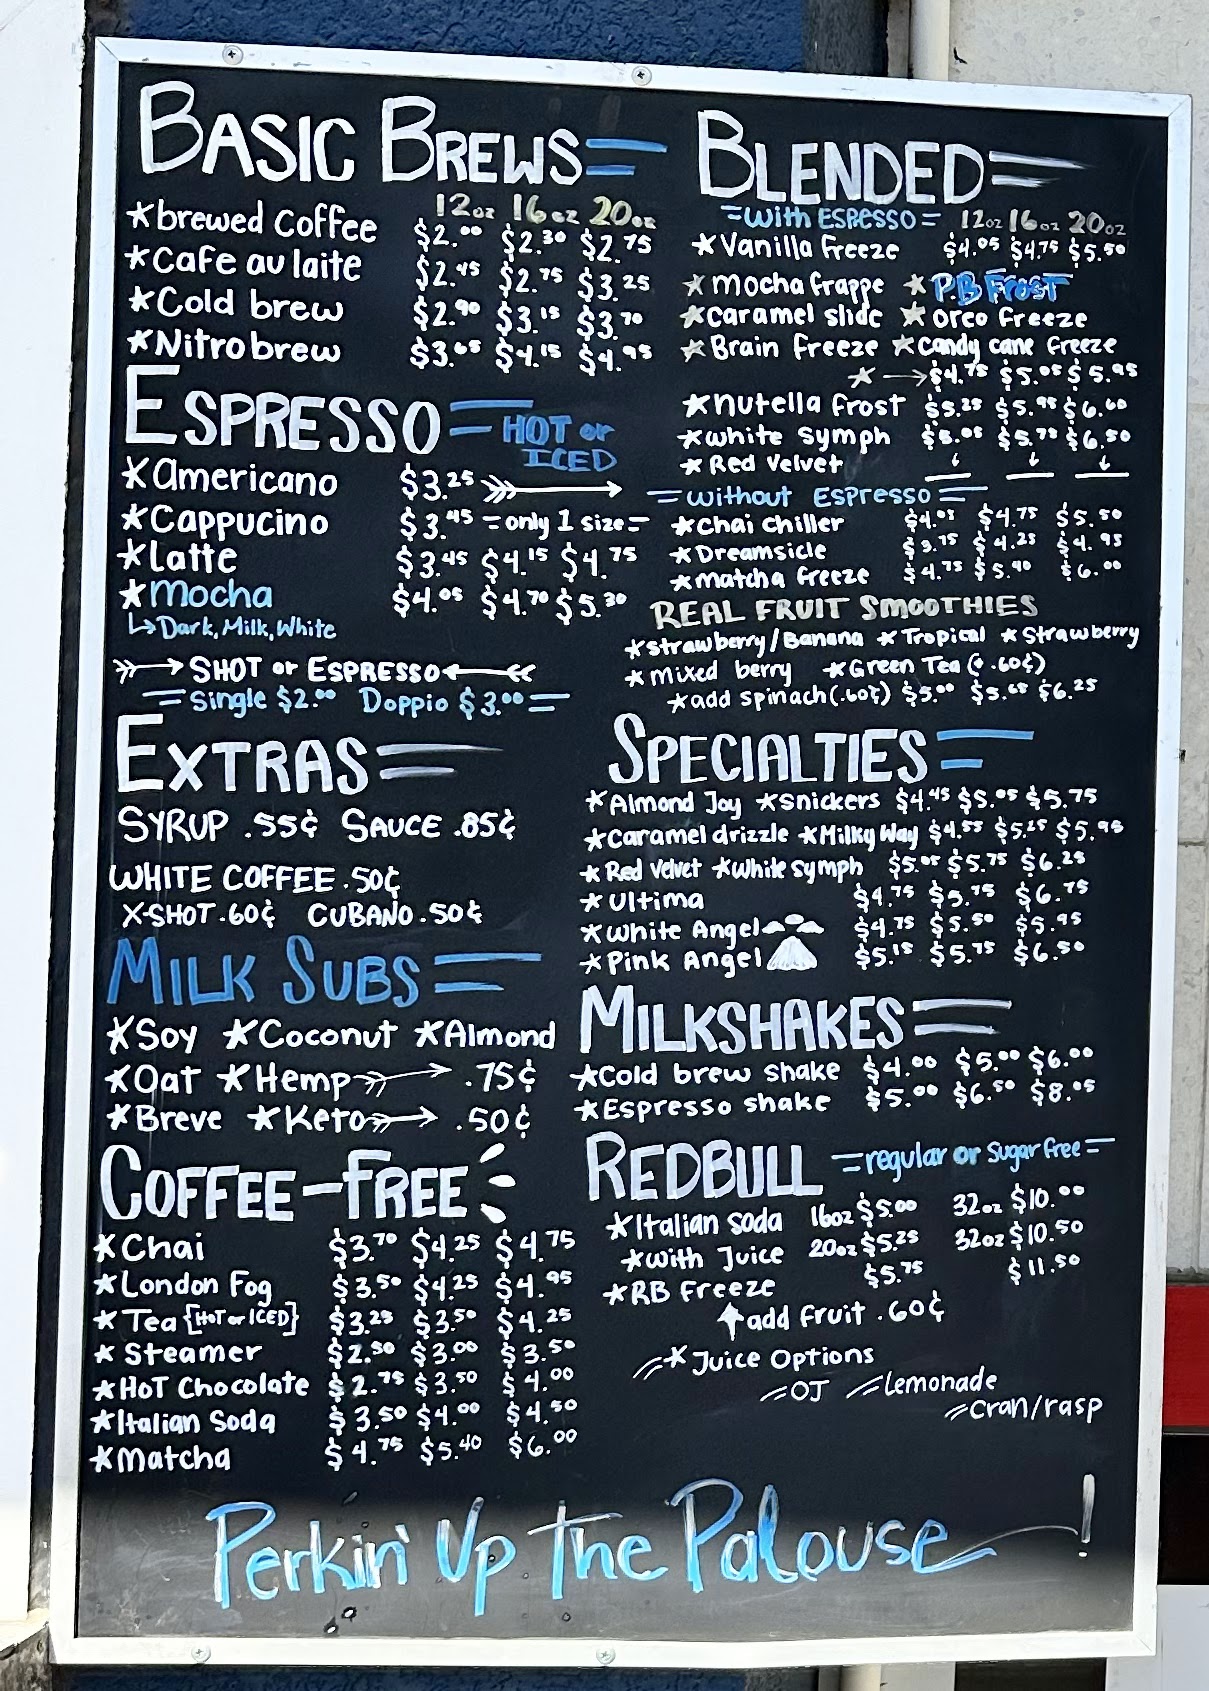 BASIC BREWS
12oz 16oz 20oz
*brewed coffee $2.00 $2.30 $2.75
*Cafe au laite $2.45 $2.75 $3.25
*Cold brew $2.90 $3.15 $3.70
*Nitro brew $3.65 $4.15 $4.95
ESPRESSO HOT or ICED
*Americano $3.25
*Cappucino $3.45 =only 1 size=
*Latte $3.45 $4.15 $4.75
*Mocha $4.05 $4.70 $5.30
Dark, Milk, White
SHOT or ESPRESSO
=Single $2.00 Doppio $3.00=
EXTRAS
SYRUP .55¢ SAUCE .85¢
WHITE COFFEE .50¢
X-SHOT .60¢ CUBANO .50¢
MILK SUBS
*Soy *Coconut *Almond
*Oat *Hemp → .75¢
*Breve *Keto → .50¢
COFFEE-FREE
*Chai $3.70 $4.25 $4.75
*London Fog $3.50 $4.25 $4.95
*Tea {HOT or ICED} $3.25 $3.50 $4.25
*Steamer $2.50 $3.00 $3.50
*HOT Chocolate $2.75 $3.50 $4.00
*Italian Soda $3.50 $4.00 $4.50
*Matcha $4.75 $5.40 $6.00
BLENDED
=With ESPRESSO= 12oz 16oz 20oz
*Vanilla Freeze $4.05 $4.75 $5.50
*mocha frappe *PB FROST
*caramel slide *oreo freeze
*Brain freeze *candy cane freeze
* → $4.75 $5.05 $5.95
*nutella frost $5.25 $5.95 $6.60
*white symph $5.05 $5.75 $6.50
*Red Velvet
=without Espresso=
*chai chiller $4.05 $4.75 $5.50
*Dreamsicle $3.75 $4.25 $4.95
*matcha freeze $4.75 $5.40 $6.00
REAL FRUIT SMOOTHIES
*strawberry/Banana *Tropical *Strawberry
*mixed berry *Green Tea (+ .60¢)
*add spinach (.60¢) $5.00 $5.65 $6.25
SPECIALTIES
*Almond Joy *snickers $4.45 $5.05 $5.75
*caramel drizzle *Milky Way $4.55 $5.25 $5.95
*Red velvet *White symph $5.05 $5.75 $6.25
*ultima $4.75 $5.75 $6.75
*white Angel $4.75 $5.50 $5.95
*Pink Angel $5.15 $5.75 $6.50
MILKSHAKES
*Cold brew shake $4.00 $5.00 $6.00
*Espresso shake $5.00 $6.50 $8.05
REDBULL =regular or Sugar free=
*Italian soda 16oz $5.00 32oz $10.00
*with Juice 20oz $5.25 32oz $10.50
*RB Freeze $5.75 $11.50
add fruit .60¢
*Juice Options
OJ Lemonade
cran/rasp
Perkin' Up The Palouse!